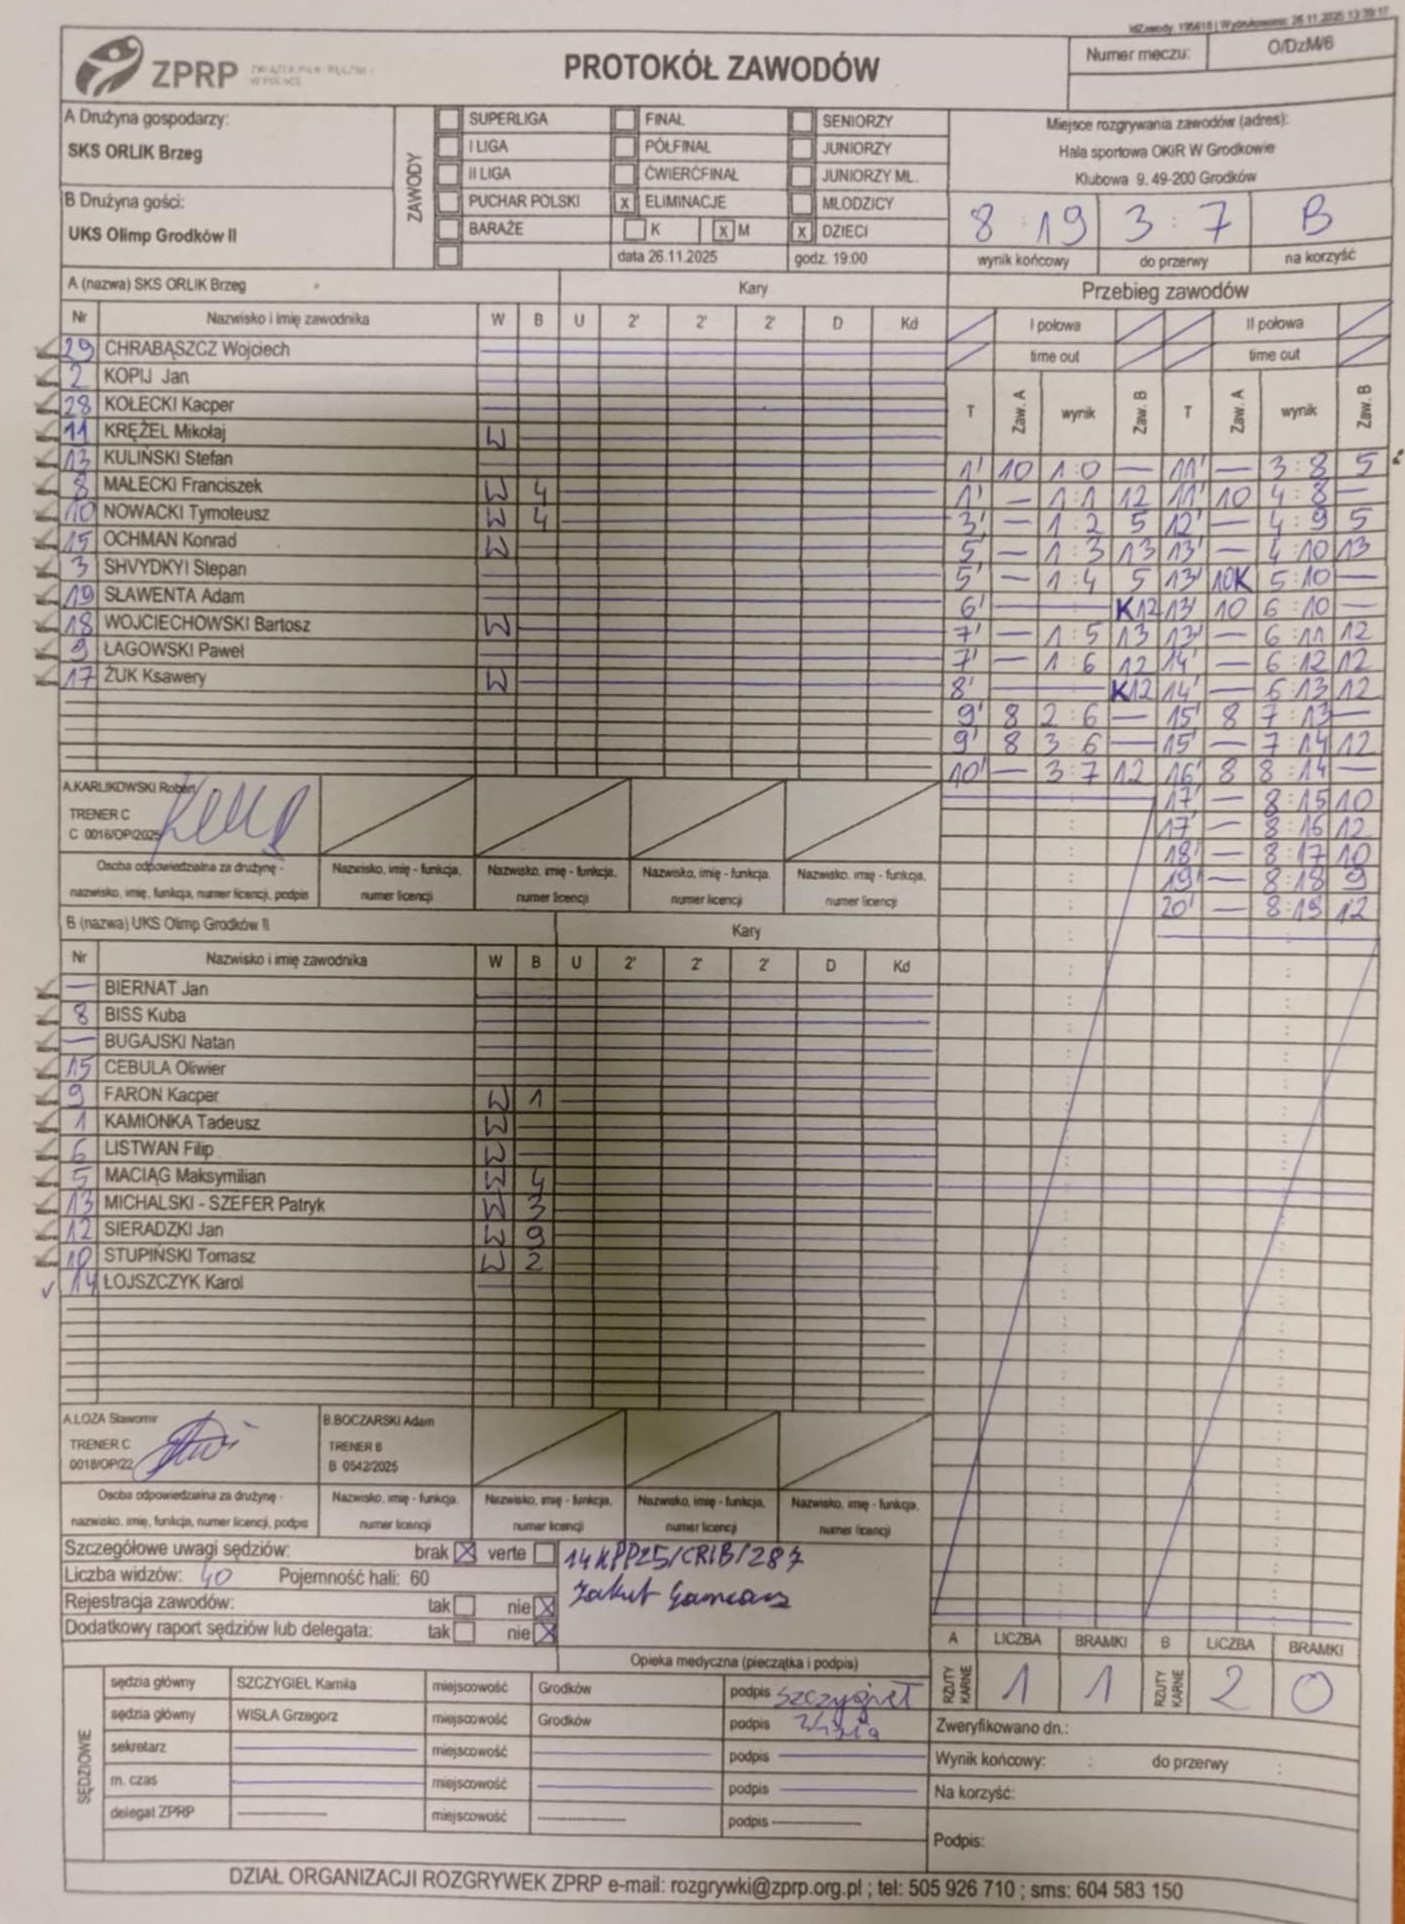 IdZawody: 195618 | Wydrukowano: 26.11.2025 13:39:17
ZPRP ZWIĄZEK PIŁKI RĘCZNEJ W POLSCE
PROTOKÓŁ ZAWODÓW
Numer meczu: O/DzM/6
A Drużyna gospodarzy:
SKS ORLIK Brzeg
B Drużyna gości:
UKS Olimp Grodków II
ZAWODY
SUPERLIGA FINAŁ SENIORZY
I LIGA PÓŁFINAŁ JUNIORZY
II LIGA ĆWIERĆFINAŁ JUNIORZY MŁ.
PUCHAR POLSKI x ELIMINACJE MŁODZICY
BARAŻE K x M x DZIECI
data 26.11.2025 godz. 19:00
Miejsce rozgrywania zawodów (adres):
Hala sportowa OKiR W Grodkowie
Klubowa 9. 49-200 Grodków
8 : 19 3 : 7 B
wynik końcowy do przerwy na korzyść
A (nazwa) SKS ORLIK Brzeg Kary
Nr Nazwisko i imię zawodnika W B U 2' 2' 2' D Kd
29 CHRABĄSZCZ Wojciech
2 KOPIJ Jan
28 KOŁECKI Kacper
11 KRĘŻEL Mikołaj W
13 KULIŃSKI Stefan
8 MAŁECKI Franciszek W 4
10 NOWACKI Tymoteusz W 4
15 OCHMAN Konrad W
3 SHVYDKYI Stepan
19 SŁAWENTA Adam
18 WOJCIECHOWSKI Bartosz W
9 ŁAGOWSKI Paweł
17 ŻUK Ksawery W
A.KARLIKOWSKI Robert
TRENER C
C 0016/OP/2025
Osoba odpowiedzialna za drużynę - Nazwisko, imię - funkcja, Nazwisko, imię - funkcja, Nazwisko, imię - funkcja, Nazwisko, imię - funkcja,
nazwisko, imię, funkcja, numer licencji, podpis numer licencji numer licencji numer licencji numer licencji
B (nazwa) UKS Olimp Grodków II Kary
Nr Nazwisko i imię zawodnika W B U 2' 2' 2' D Kd
— BIERNAT Jan
8 BISS Kuba
— BUGAJSKI Natan
15 CEBULA Oliwier
9 FARON Kacper W 1
1 KAMIONKA Tadeusz W
6 LISTWAN Filip W
5 MACIĄG Maksymilian W 4
13 MICHALSKI - SZEFER Patryk W 3
12 SIERADZKI Jan W 9
10 STUPIŃSKI Tomasz W 2
14 ŁOJSZCZYK Karol
A.LOZA Sławomir
TRENER C
0018/OP/22
B.BOCZARSKI Adam
TRENER B
B 0542/2025
Osoba odpowiedzialna za drużynę - Nazwisko, imię - funkcja, Nazwisko, imię - funkcja, Nazwisko, imię - funkcja, Nazwisko, imię - funkcja,
nazwisko, imię, funkcja, numer licencji, podpis numer licencji numer licencji numer licencji numer licencji
Przebieg zawodów
I połowa II połowa
time out time out
T Zaw. A wynik Zaw. B T Zaw. A wynik Zaw. B
1' 10 1 : 0 — 11' — 3 : 8 5
1' — 1 : 1 12 11' 10 4 : 8 —
3' — 1 : 2 5 12' — 4 : 9 5
5' — 1 : 3 13 13' — 4 : 10 13
5' — 1 : 4 5 13' 10K 5 : 10 —
6' — K12 13' 10 6 : 10 —
7' — 1 : 5 13 13' — 6 : 11 12
7' — 1 : 6 12 14' — 6 : 12 12
8' — K12 14' — 6 : 13 12
9' 8 2 : 6 — 15' 8 7 : 13 —
9' 8 3 : 6 — 15' — 7 : 14 12
10' — 3 : 7 12 16' 8 8 : 14 —
17' — 8 : 15 10
17' — 8 : 16 12
18' — 8 : 17 10
19' — 8 : 18 9
20' — 8 : 19 12
Szczegółowe uwagi sędziów: brak X verte
Liczba widzów: 40 Pojemność hali: 60
Rejestracja zawodów: tak nie X
Dodatkowy raport sędziów lub delegata: tak nie X
14KPP25/CRIB/287
Opieka medyczna (pieczątka i podpis)
A LICZBA BRAMKI B LICZBA BRAMKI
RZUTY KARNE 1 1 RZUTY KARNE 2 0
SĘDZIOWIE
sędzia główny SZCZYGIEŁ Kamila miejscowość Grodków podpis Szczygieł
sędzia główny WISŁA Grzegorz miejscowość Grodków podpis
sekretarz miejscowość podpis
m. czas miejscowość podpis
delegat ZPRP miejscowość podpis
Zweryfikowano dn.:
Wynik końcowy: : do przerwy :
Na korzyść:
Podpis:
DZIAŁ ORGANIZACJI ROZGRYWEK ZPRP e-mail: rozgrywki@zprp.org.pl ; tel: 505 926 710 ; sms: 604 583 150